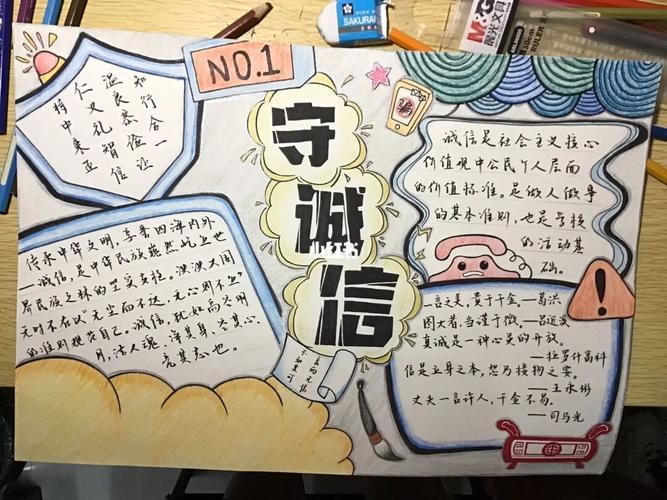 NO.1
守诚信
知行合一
温良恭俭让
仁义礼智信
中秉正
骗
诚信是社会主义核心
价值观中公民个人层面
的价值标准。是做人做事
的基本准则,也是学校
的活动基
础。
传承中华文明,享誉四海内外
—诚信,是中华民族巍然屹立世
界民族之林的坚实支柱。泱泱大国
无时不在以
的准则规范自己。诚信,犹如高空明
月,洁人魂,泽其身,其心,
亮其志也。
人而无信
不知其可
言之美,贵于千金—葛洪
图大者,当谨于微。—吕近溪
真诚是一种心灵的开放。
—拉罗什富科
信是立身之本,恕乃接物之要。
—王永彬
丈夫一言许人,千金不易。
—司马光
小红书
SAKURA
M&G
晨光文具
RULER